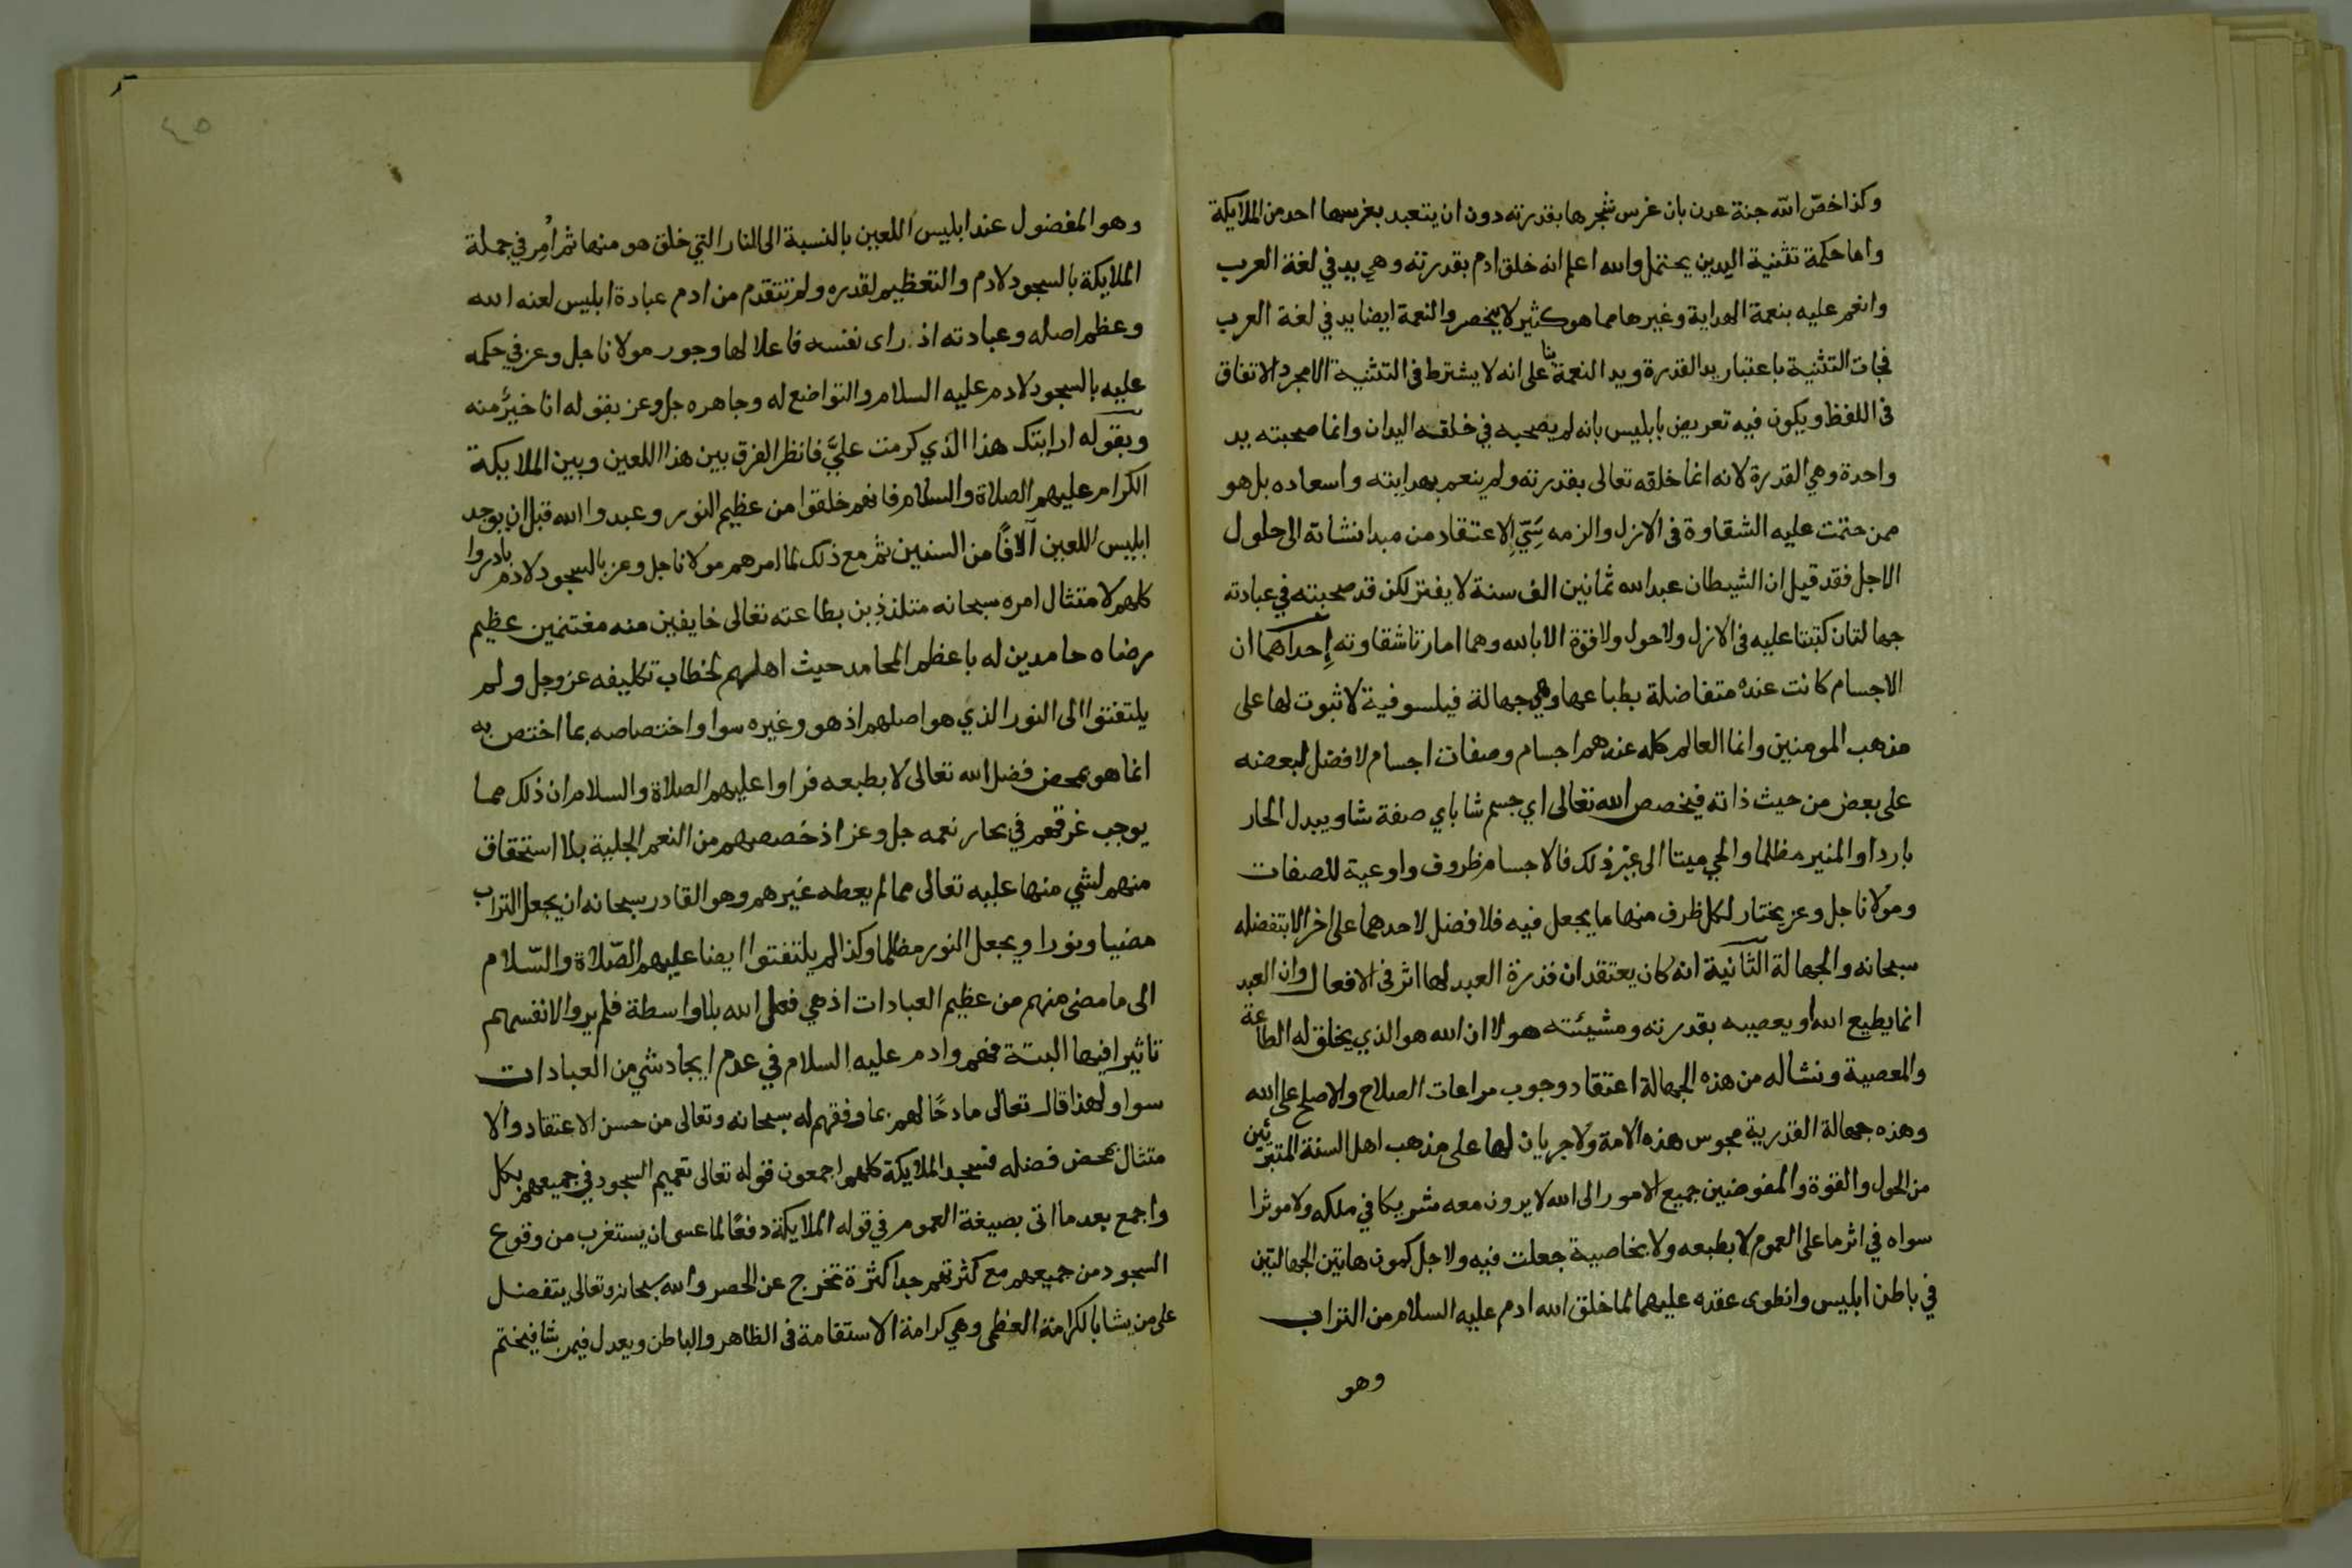 وكذا خصّ الله جنة عدن بان غرس شجرها بقدرته دون ان يتعبد بغرسها احد من الملايكة
واما حكمة تثنية اليدين يحتمل والله اعلم انه خلق ادم بقدرته وهي يد في لغة العرب
وانعم عليه بنعمة الهداية وغيرها مما هو كثير لا ينحصر والنعمة ايضا يد في لغة العرب
فجات التثنية باعتبار يد القدرة ويد النعمة بنا على انه لا يشترط في التثنية الا مجرد الاتفاق
في اللفظ ويكون فيه تعريض بابليس بانه لم يصحبه في خلقه اليدان وانما صحبته يد
واحدة وهي القدرة لانه انما خلقه تعالى بقدرته ولم ينعم بهدايته واسعاده بل هو
ممن حتمت عليه الشقاوة في الازل والزمه سَيّ الاعتقاد من مبدا نشاته الى حلول
الاجل فقد قيل ان الشيطان عبد الله ثمانين الف سنة لا يفتر لكن قد صحبته في عبادته
جهالتان كتبتا عليه في الازل ولا حول ولا قوة الا بالله وهما امارتا شقاوته إحداهما ان
الاجسام كانت عنده متفاضلة بطباعها وهي جهالة فيلسوفية لا ثبوت لها على
مذهب المومنين وانما العالم كله عندهم اجسام وصفات اجسام لا فضل لبعضه
على بعض من حيث ذاته فيخصص الله تعالى اي جسم شا باي صفة شا ويبدل الحار
باردا والمنير مظلما والحي ميتا الى غير ذلك فالاجسام ظروف واوعية للصفات
ومولانا جل وعز يختار لكل ظرف منها ما يجعل فيه فلا فضل لاحدهما على اخر الا بتفضله
سبحانه والجهالة الثانية انه كان يعتقد ان قدرة العبد لها اثر في الافعال وان العبد
انما يطيع الله او يعصيه بقدرته ومشيئته هو لا ان الله هو الذي يخلق له الطاعة
والمعصية ونشا له من هذه الجهالة اعتقاد وجوب مراعات الصلاح والاصلح على الله
وهذه جهالة القدرية مجوس هذه الامة ولا جريان لها على مذهب اهل السنة المتبرئين
من الحول والقوة والمفوضين جميع الامور الى الله لا يرون معه شريكا في ملكه ولا موثرا
سواه في اثر ما على العموم لا بطبعه ولا بخاصية جعلت فيه ولاجل كمون هاتين الجهالتين
في باطن ابليس وانطوى عقده عليهما لما خلق الله ادم عليه السلام من التراب
وهو
٤٥
وهو المفضول عند ابليس اللعين بالنسبة الى النار التي خلق هو منها ثم اُمِر في جملة
الملايكة بالسجود لادم والتعظيم لقدره ولم تتقدم من ادم عبادة ابليس لعنه الله
وعظم اصله وعبادته اذ راى نفسه فاعلا لها وجور مولانا جل وعز في حكمه
عليه بالسجود لادم عليه السلام والتواضع له وجاهره جل وعز بقوله انا خيرٌ منه
وبقوله ارايتك هذا الذي كرمت عليَّ فانظر الفرق بين هذا اللعين وبين الملايكة
الكرام عليهم الصلاة والسلام فانهم خلقوا من عظيم النور وعبدوا الله قبل ان يوجد
ابليس اللعين آلافًا من السنين ثم مع ذلك لما امرهم مولانا جل وعز بالسجود لادم بادروا
كلهم لامتثال امره سبحانه متلذذين بطاعته تعالى خايفين منه مغتنمين عظيم
رضاه حامدين له باعظم المحامد حيث اهلهم لخطاب تكليفه عز وجل ولم
يلتفتوا الى النور الذي هو اصلهم اذ هو وغيره سوا واختصاصه بما اختص به
انما هو بمحض فضل الله تعالى لا بطبعه فراوا عليهم الصلاة والسلام ان ذلك مما
يوجب غرقهم في بحار نعمه جل وعز اذ خصصهم من النعم الجلية بلا استحقاق
منهم لشي منها عليه تعالى مما لم يعطه غيرهم وهو القادر سبحانه ان يجعل التراب
مضيا ونورا ويجعل النور مظلما وكذا لم يلتفتوا ايضا عليهم الصّلاة والسّلام
الى ما مضى منهم من عظيم العبادات اذ هي فعل الله بلا واسطة فلم يروا لانفسهم
تاثيرا فيها البتة فهم وادم عليه السلام في عدم ايجاد شي من العبادات
سوا ولهذا قال تعالى مادحًا لهم بما وفقهم له سبحانه وتعالى من حسن الاعتقاد والا
متثال بمحض فضله فسجد الملايكة كلهم اجمعون فقوله تعالى تعميم السجود في جميعهم بكل
واجمع بعد ما اتى بصيغة العموم في قوله الملايكة دفعًا لما عسى ان يستغرب من وقوع
السجود من جميعهم مع كثرتهم جدا كثرة تخرج عن الحصر والله سبحانه وتعالى يتفضل
على من يشا بالكرامة العظمى وهي كرامة الاستقامة في الظاهر والباطن ويعدل فيمن يشا فيختم